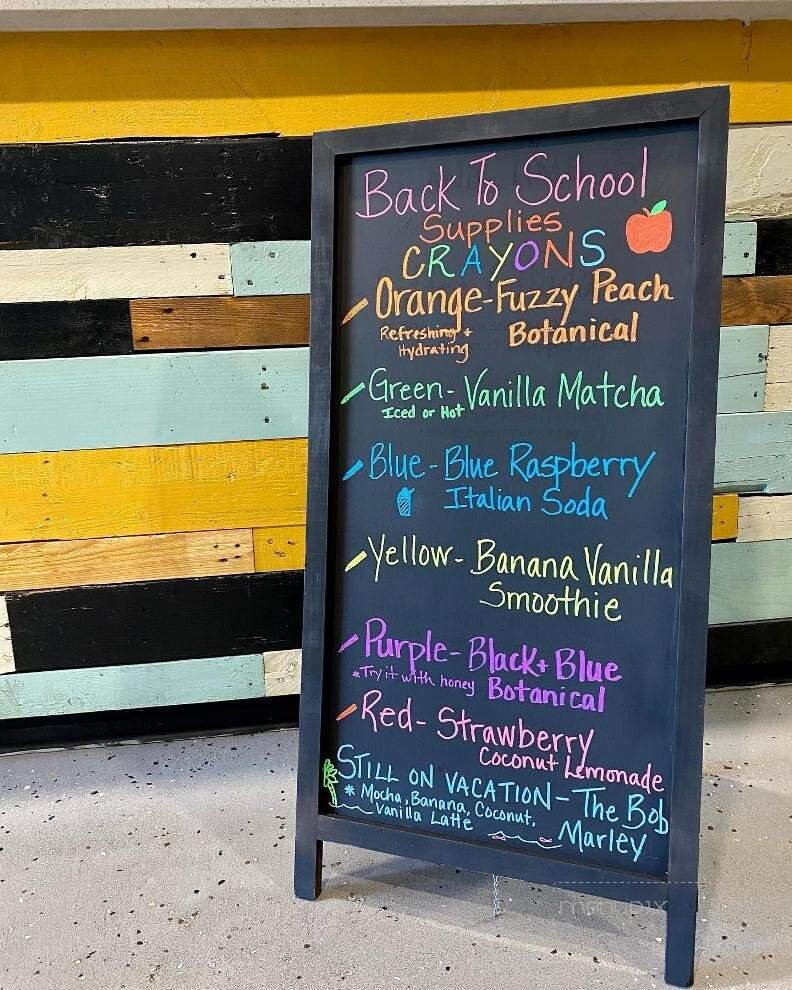 Back To School
Supplies
CRAYONS
Orange-Fuzzy Peach
Refreshing + Botanical
Hydrating
Green-Vanilla Matcha
Iced or Hot
Blue-Blue Raspberry
Italian Soda
Yellow-Banana Vanilla
Smoothie
Purple-Black+Blue
*Try it with honey Botanical
Red-Strawberry
Coconut Lemonade
STILL ON VACATION-The Bob
* Mocha, Banana, Coconut, Marley
Vanilla Latte